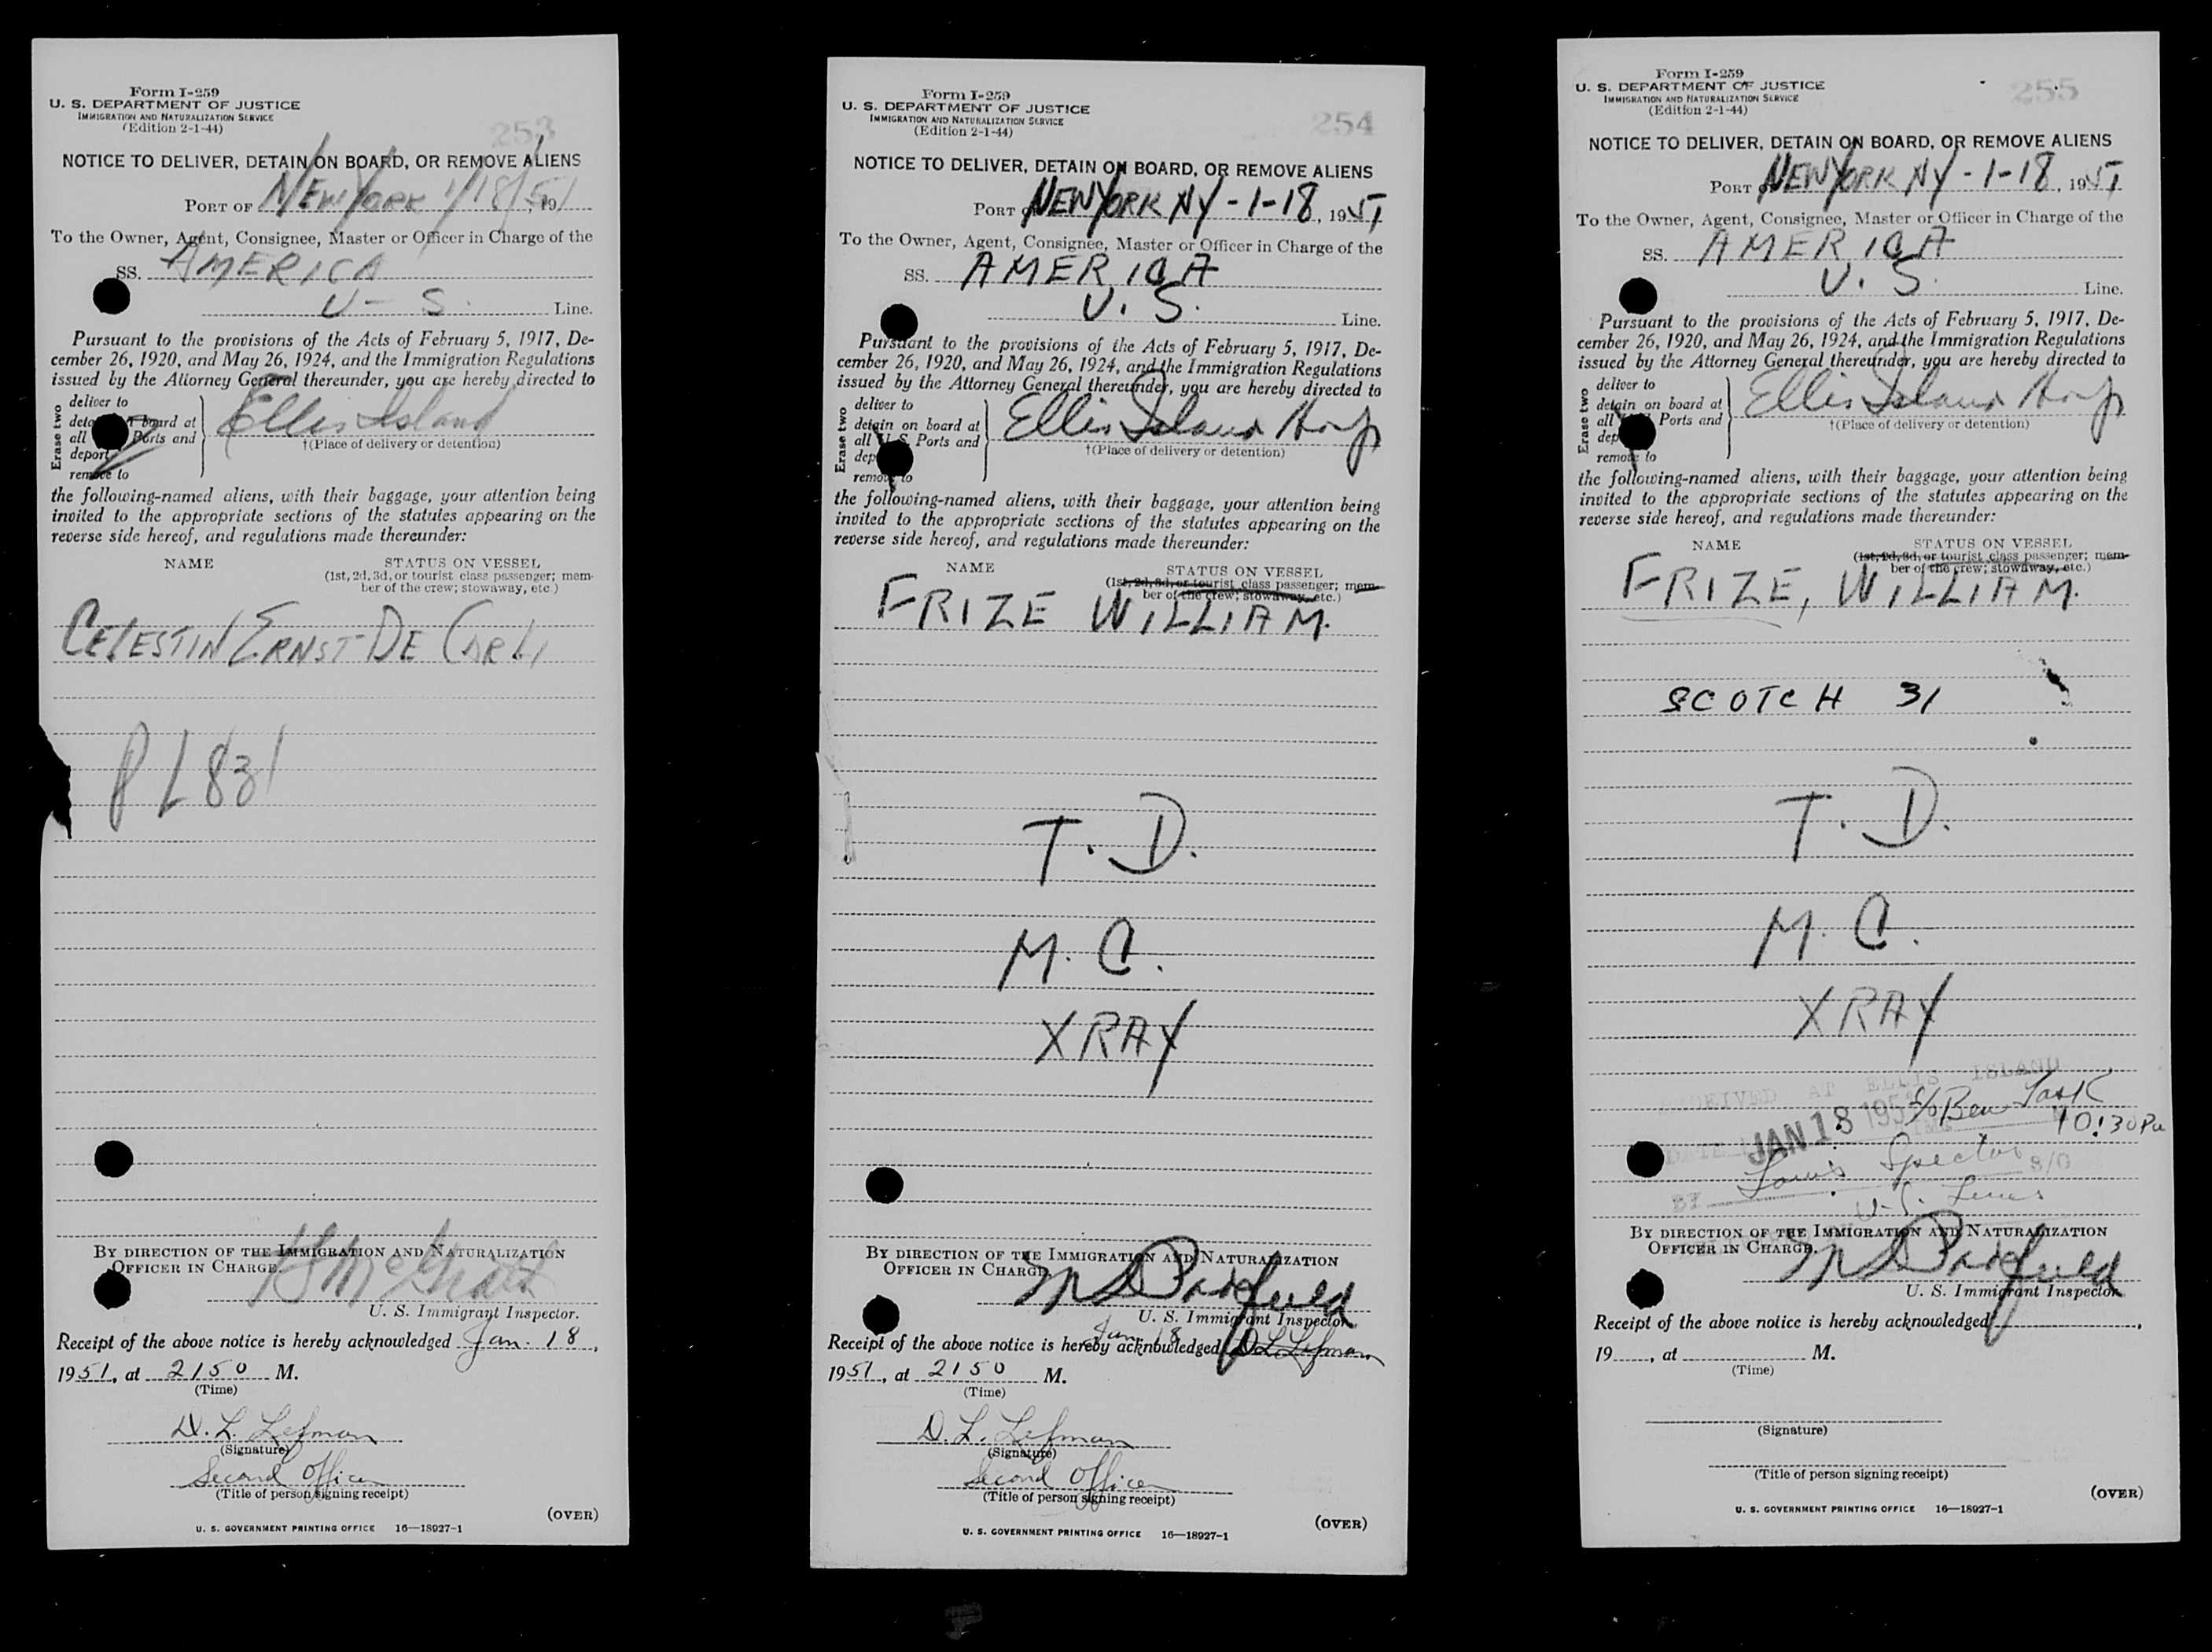 Form I-259
U. S. DEPARTMENT OF JUSTICE
IMMIGRATION AND NATURALIZATION SERVICE
(Edition 2-1-44)
253
NOTICE TO DELIVER, DETAIN ON BOARD, OR REMOVE ALIENS
PORT OF NEW YORK 1/18/51, 19
To the Owner, Agent, Consignee, Master or Officer in Charge of the
SS. AMERICA
U-S. Line.
Pursuant to the provisions of the Acts of February 5, 1917, De-
cember 26, 1920, and May 26, 1924, and the Immigration Regulations
issued by the Attorney General thereunder, you are hereby directed to
Erase two
deliver to
board at
all Ports and
deport
remove to
Ellis Island
†(Place of delivery or detention)
the following-named aliens, with their baggage, your attention being
invited to the appropriate sections of the statutes appearing on the
reverse side hereof, and regulations made thereunder:
NAME STATUS ON VESSEL
(1st, 2d, 3d, or tourist class passenger; mem-
ber of the crew; stowaway, etc.)
CELESTIN ERNST DE CARLI
PL 831
BY DIRECTION OF THE IMMIGRATION AND NATURALIZATION
OFFICER IN CHARGE.
McGrath
U. S. Immigrant Inspector.
Receipt of the above notice is hereby acknowledged Jan. 18,
1951, at 2150 M.
(Time)
D. L. Lefman
(Signature)
Second Officer
(Title of person signing receipt)
(OVER)
U. S. GOVERNMENT PRINTING OFFICE 16—18927-1
Form I-259
U. S. DEPARTMENT OF JUSTICE
IMMIGRATION AND NATURALIZATION SERVICE
(Edition 2-1-44)
254
NOTICE TO DELIVER, DETAIN ON BOARD, OR REMOVE ALIENS
PORT OF NEW YORK NY - 1-18, 1951
To the Owner, Agent, Consignee, Master or Officer in Charge of the
SS. AMERICA
U. S. Line.
Pursuant to the provisions of the Acts of February 5, 1917, De-
cember 26, 1920, and May 26, 1924, and the Immigration Regulations
issued by the Attorney General thereunder, you are hereby directed to
Erase two
deliver to
detain on board at
all U. S. Ports and
dep
remove to
Ellis Island Hosp
†(Place of delivery or detention)
the following-named aliens, with their baggage, your attention being
invited to the appropriate sections of the statutes appearing on the
reverse side hereof, and regulations made thereunder:
NAME STATUS ON VESSEL
(1st, 2d, 3d, or tourist class passenger; mem-
ber of the crew; stowaway, etc.)
FRIZE WILLIAM.
T. D.
M. C.
X RAY
BY DIRECTION OF THE IMMIGRATION AND NATURALIZATION
OFFICER IN CHARGE.
U. S. Immigrant Inspector.
Receipt of the above notice is hereby acknowledged Jan 18 D L Lefman
1951, at 2150 M.
(Time)
D. L. Lefman
(Signature)
Second Officer
(Title of person signing receipt)
(OVER)
U. S. GOVERNMENT PRINTING OFFICE 16—18927-1
Form I-259
U. S. DEPARTMENT OF JUSTICE
IMMIGRATION AND NATURALIZATION SERVICE
(Edition 2-1-44)
255
NOTICE TO DELIVER, DETAIN ON BOARD, OR REMOVE ALIENS
PORT OF NEW YORK NY - 1-18, 1951
To the Owner, Agent, Consignee, Master or Officer in Charge of the
SS. AMERICA
U. S. Line.
Pursuant to the provisions of the Acts of February 5, 1917, De-
cember 26, 1920, and May 26, 1924, and the Immigration Regulations
issued by the Attorney General thereunder, you are hereby directed to
Erase two
deliver to
detain on board at
all Ports and
dep
remove to
Ellis Island Hosp
†(Place of delivery or detention)
the following-named aliens, with their baggage, your attention being
invited to the appropriate sections of the statutes appearing on the
reverse side hereof, and regulations made thereunder:
NAME STATUS ON VESSEL
(1st, 2d, 3d, or tourist class passenger; mem-
ber of the crew; stowaway, etc.)
FRIZE, WILLIAM.
SCOTCH 31
T. D.
M. C.
X RAY
RECEIVED AT ELLIS ISLAND
Ben Task
DATE JAN 18 195 TIME 10:30 PM
BY Louis Spector S/O
U.S. Lines
BY DIRECTION OF THE IMMIGRATION AND NATURALIZATION
OFFICER IN CHARGE.
U. S. Immigrant Inspector.
Receipt of the above notice is hereby acknowledged,
19, at M.
(Time)
(Signature)
(Title of person signing receipt)
(OVER)
U. S. GOVERNMENT PRINTING OFFICE 16—18927-1